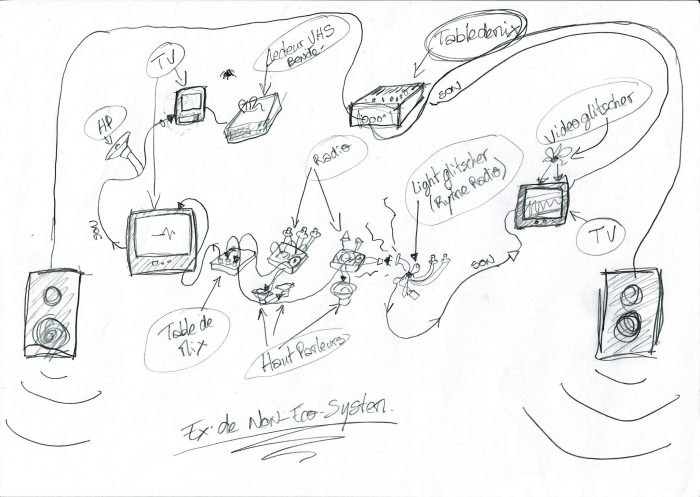 TV
Lecteur VHS
Bender
Table de mix
SON
HP
Radio
Video glitscher
Light glitscher
(Rytme Radio)
SON
TV
SON
Table de
Mix
Haut Parleurs
Ex. de Non-Eco-System.